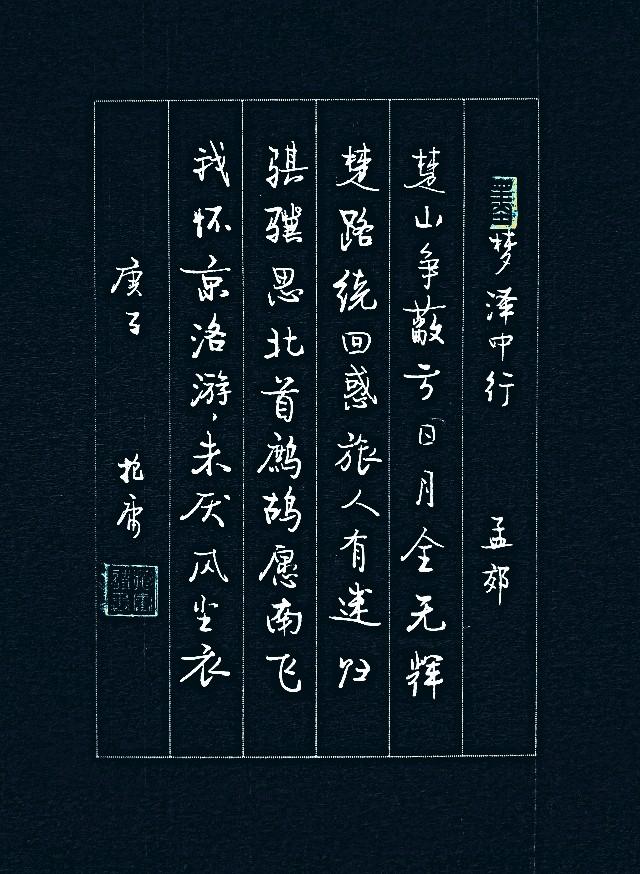 梦泽中行 孟郊
楚山争蔽亏日月全无辉
楚路绕回惑旅人有迷归
骐骥思北首鹧鸪愿南飞
我怀京洛游,未厌风尘衣
庚子 抱庸